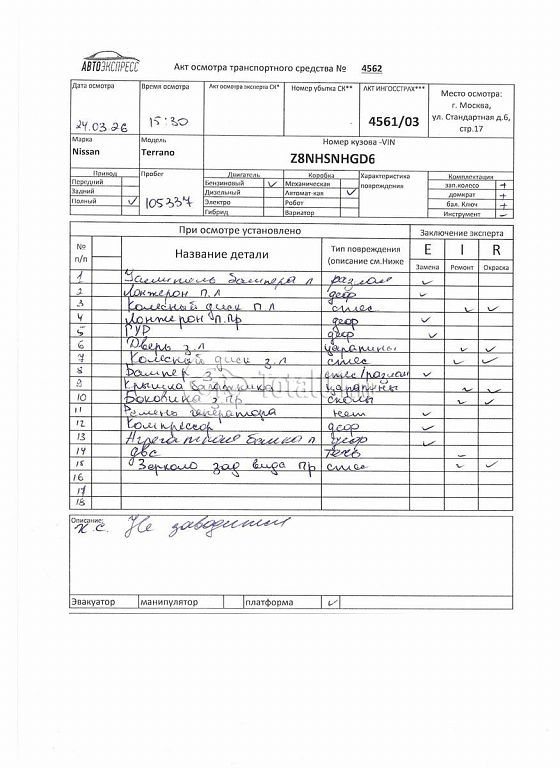 АВТОЭКСПРЕСС
Акт осмотра транспортного средства № 4562
Дата осмотра Время осмотра Акт осмотра эксперта СК* Номер убытка СК** АКТ ИНГОССТРАХ*** Место осмотра:
24.03.26 15:30 4561/03 г. Москва,
ул. Стандартная д.6,
стр.17
Марка Модель Номер кузова -VIN
Nissan Terrano Z8NHSNHGD6
Привод Пробег Двигатель Коробка Характеристика повреждения Комплектация
Передний Бензиновый ✓ Механическая зап.колесо +
Задний Дизельный Автомат-кая ✓ домкрат +
Полный ✓ 105337 Электро Робот бал. Ключ +
Гибрид Вариатор Инструмент -
При осмотре установлено Заключение эксперта
№ п/п Название детали Тип повреждения (описание см.Ниже E I R
Замена Ремонт Окраска
1 Усилитель бампера п разлом ✓
2 Лонжерон п.л деф ✓
3 Колесный диск п л стес ✓ ✓
4 Лонжерон п.пр деф ✓
5 ГУР деф ✓
6 Дверь з л царапины ✓ ✓
7 Колесный диск з л стес ✓ ✓
8 Бампер з стес/разлом ✓
9 Крышка багажника царапины ✓ ✓
10 Боковина з пр сколы ✓ ✓
11 Ремень генератора нет ✓
12 Компрессор деф ✓
13 балка п деф ✓
14 ДВС течь -
15 Зеркало зад вида пр стес ✓ ✓
16
17
18
Описание:
Не заводится
Эвакуатор манипулятор платформа ✓
Total